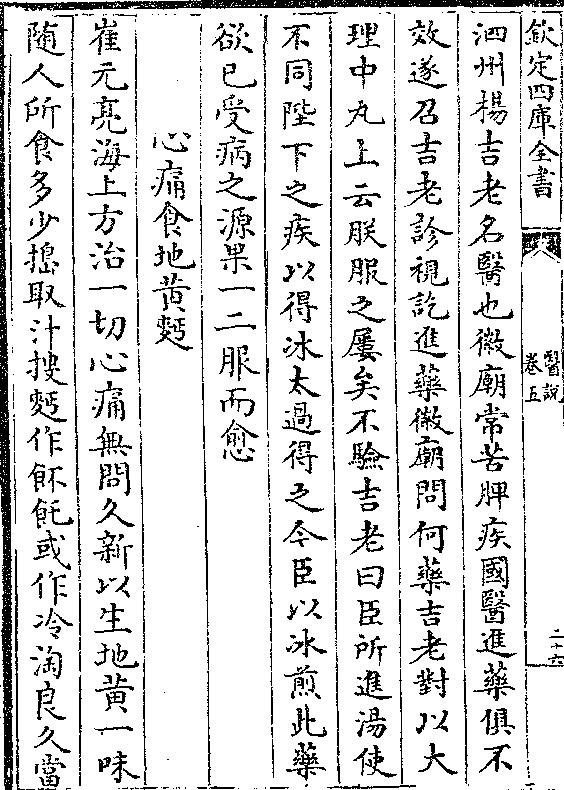 欽定四庫全書
醫説
卷五
二十六
泗州楊吉老名醫也徽廟常苦脾疾國醫進藥俱不
效遂召吉老診視訖進藥徽廟問何藥吉老對以大
理中丸上云朕服之屢矣不驗吉老曰臣所進湯使
不同陛下之疾以得冰太過得之今臣以冰煎此藥
欲已受病之源果一二服而愈
心痛食地黄麪
崔元亮海上方治一切心痛無問久新以生地黄一味
隨人所食多少搗取汁搜麪作飥飥或作冷淘良久當